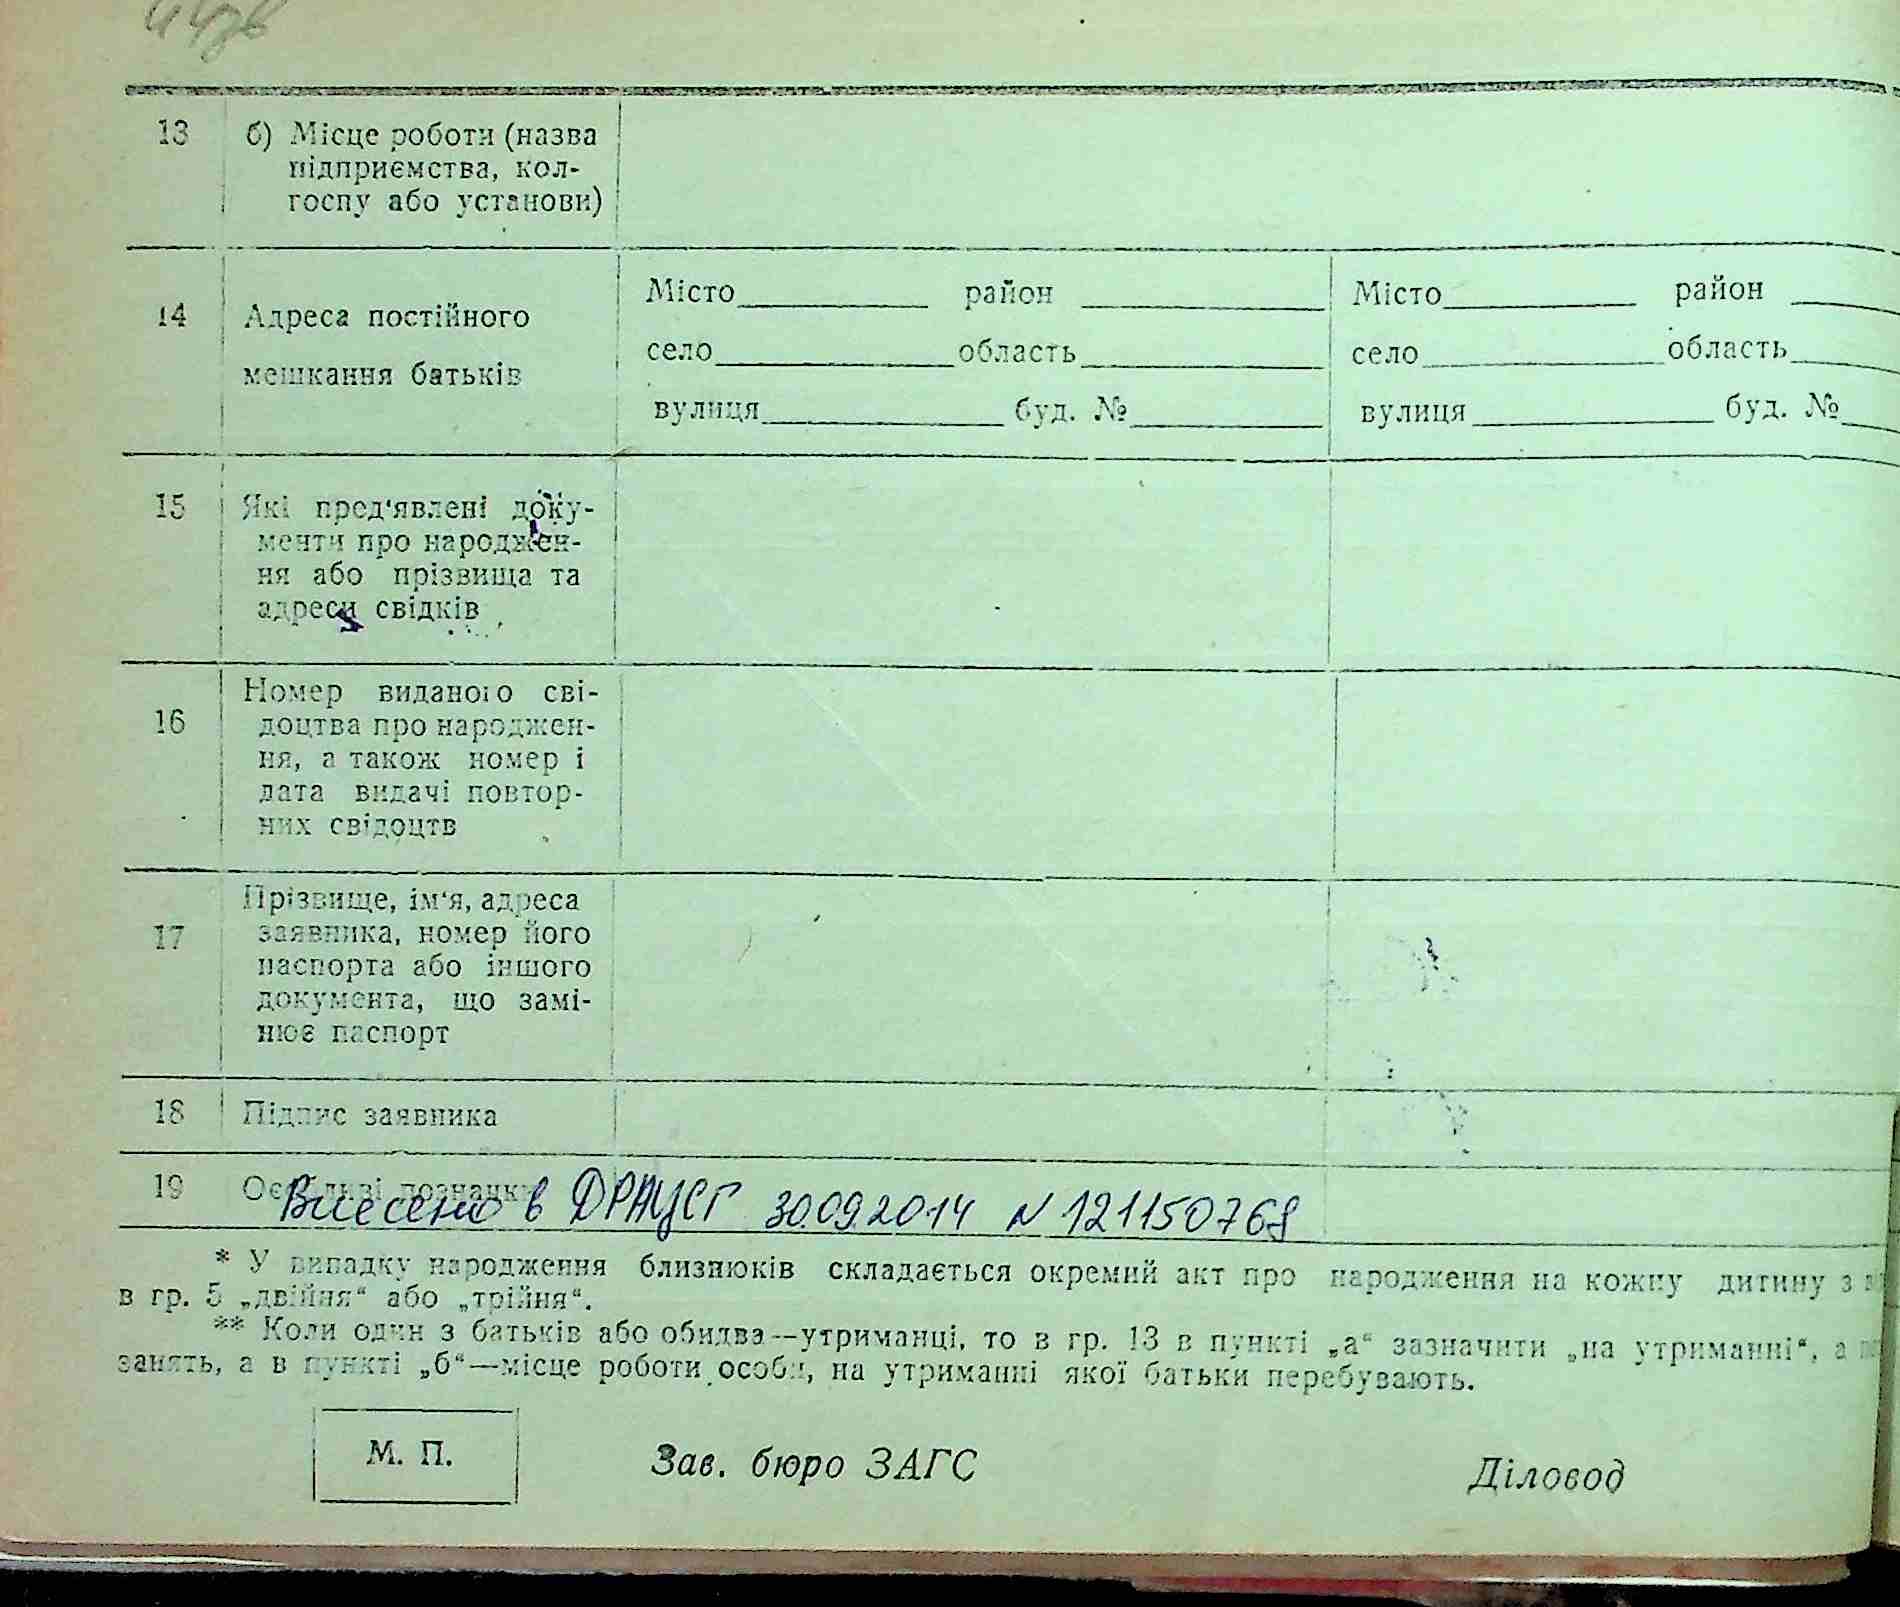 13 б) Місце роботи (назва
підприємства, кол-
госпу або установи)
14 Адреса постійного
мешкання батьків
Місто район
село область
вулиця буд. №
Місто район
село область
вулиця буд. №
15 Які пред'явлені доку-
менти про народжен-
ня або прізвища та
адреси свідків
16 Номер виданого сві-
доцтва про народжен-
ня, а також номер і
дата видачі повтор-
них свідоцтв
17 Прізвище, ім'я, адреса
заявника, номер його
паспорта або іншого
документа, що замі-
нює паспорт
18 Підпис заявника
19 Особливі позначки
Внесено в ДРАЦСГ 30.09.2014 N 121150768
* У випадку народження близнюків складається окремий акт про народження на кожну дитину з
в гр. 5 „двійня“ або „трійня“.
** Коли один з батьків або обидва—утриманці, то в гр. 13 в пункті „а“ зазначити „на утриманні“, а
занять, а в пункті „б“—місце роботи особи, на утриманні якої батьки перебувають.
М. П.
Зав. бюро ЗАГС
Діловод